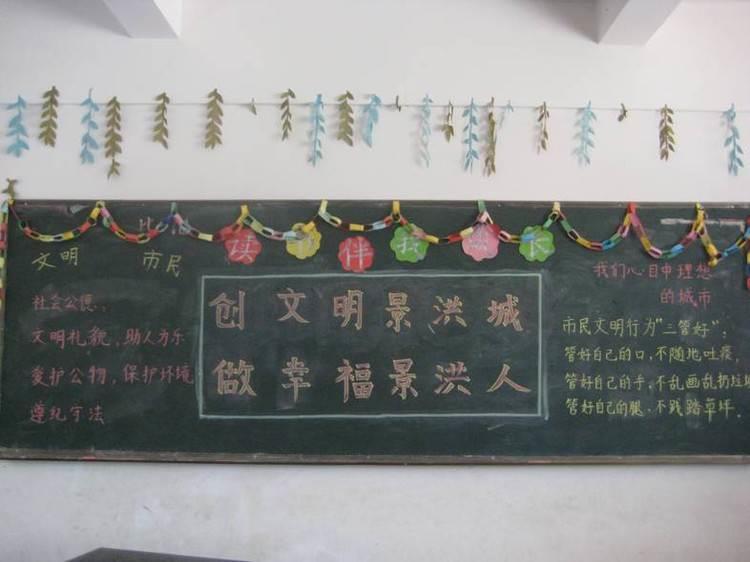 读书伴我成长
文明 市民
社会公德：
文明礼貌，助人为乐
爱护公物，保护环境
遵纪守法
创文明景洪城
做幸福景洪人
我们心目中理想
的城市
市民文明行为"三管好"：
管好自己的口，不随地吐痰，
管好自己的手，不乱画乱扔垃圾
管好自己的腿，不践踏草坪。